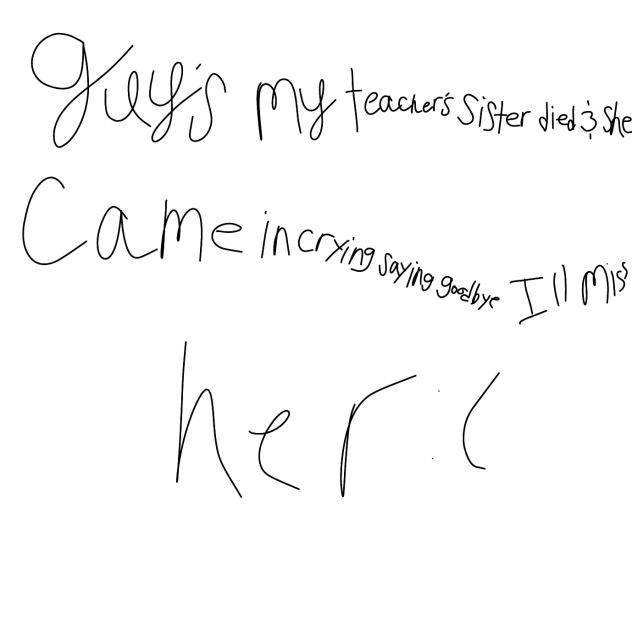 guy's my teacher's sister died & she
Came in crying saying goodbye I'll miss
her :(